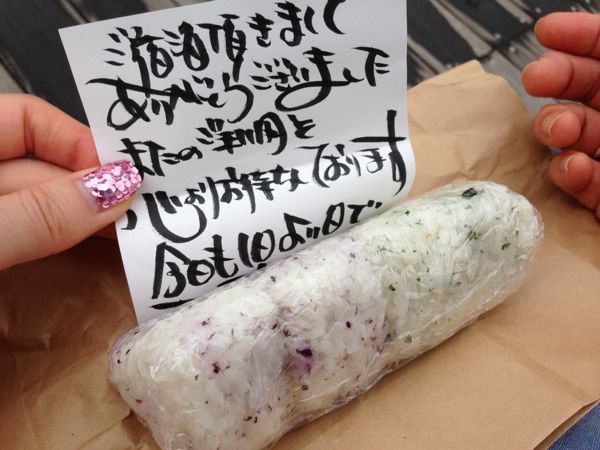 ご宿泊頂きまして
ありがとうございました
またのご利用を
心よりお待ちしております
今日も1日よい日で